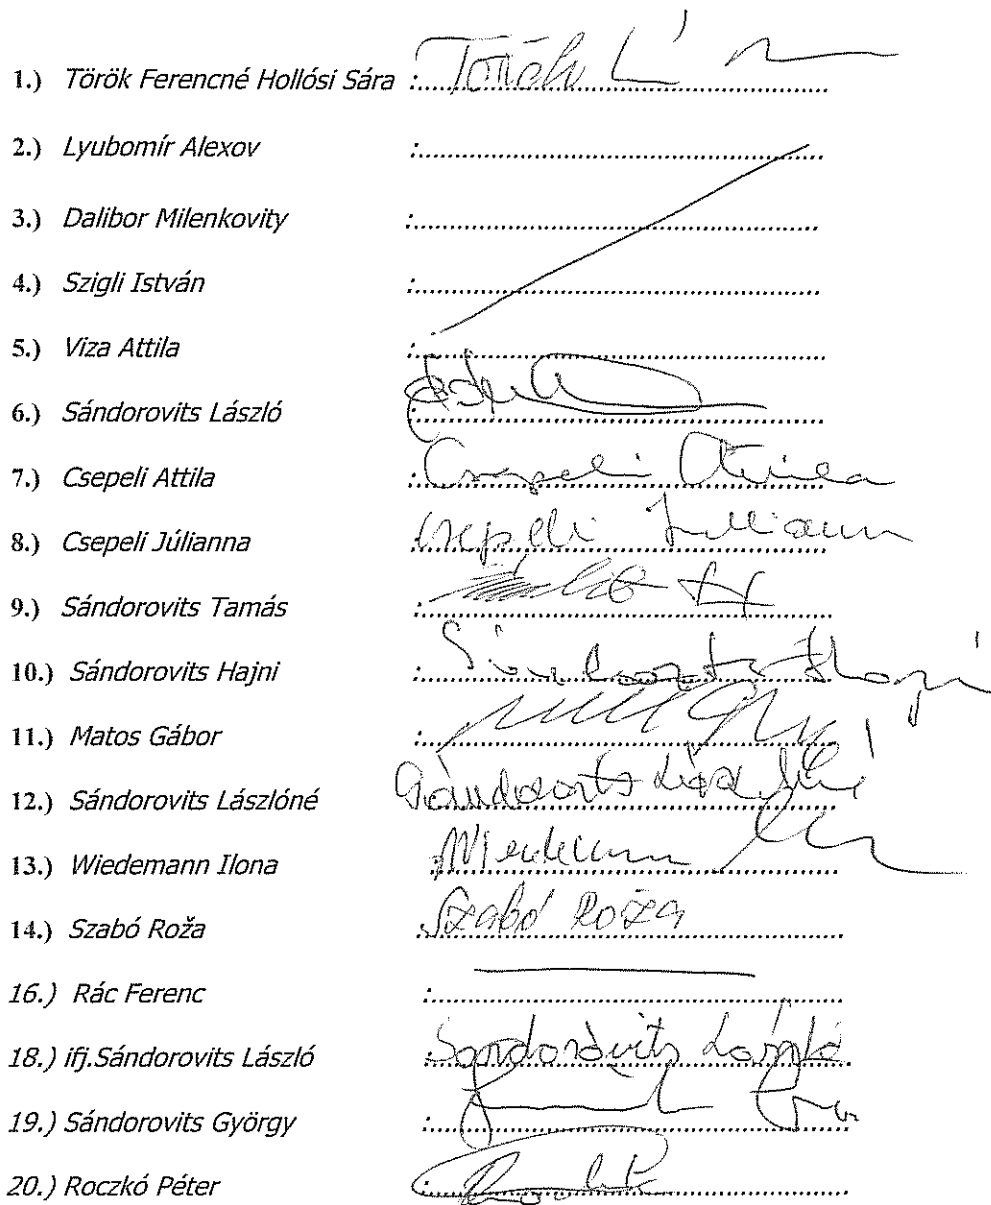 1.) Török Ferencné Hollósi Sára :
2.) Lyubomír Alexov :
3.) Dalibor Milenkovity :
4.) Szigli István :
5.) Viza Attila :
6.) Sándorovits László :
7.) Csepeli Attila : Csepeli Attila
8.) Csepeli Júlianna : Csepeli Julianna
9.) Sándorovits Tamás :
10.) Sándorovits Hajni :
11.) Matos Gábor :
12.) Sándorovits Lászlóné
13.) Wiedemann Ilona : Wiedemann
14.) Szabó Roža : Szabó Roža
16.) Rác Ferenc :
18.) ifj.Sándorovits László : Sándorovits László
19.) Sándorovits György :
20.) Roczkó Péter :